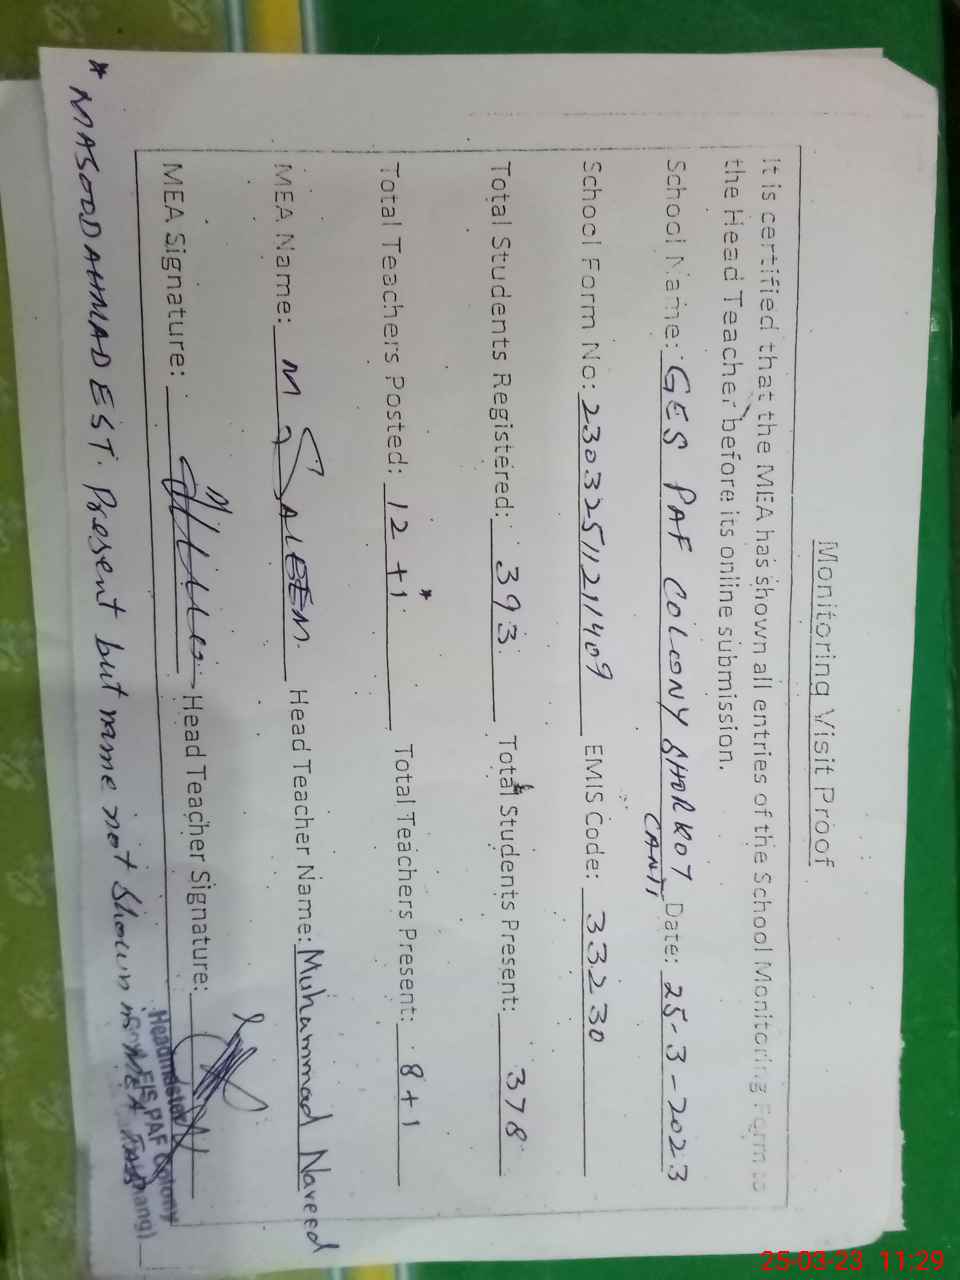 Monitoring Visit Proof
It is certified that the MEA has shown all entries of the School Monitoring Form to
the Head Teacher before its online submission.
School Name: GES PAF COLONY SHORKOT CANTT Date: 25-3-2023
School Form No: 23032511211409 EMIS Code: 33230
Total Students Registered: 393 Total Students Present: 378
Total Teachers Posted: 12 +1* Total Teachers Present: 8+1
MEA Name: M SALEEM Head Teacher Name: Muhammad Naveed
MEA Signature: Head Teacher Signature:
Headmaster
E/S PAF Colony
* MASOOD AHMAD EST. Present but name not shown MEA TAB
25-03-23 11:29